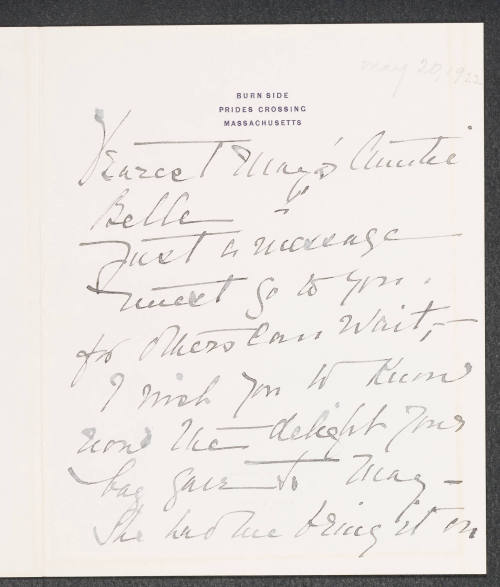 May 20, 1922
BURN SIDE
PRIDES CROSSING
MASSACHUSETTS
Dearest May's Auntie
Belle
Just a message
must go to you,
for others can wait,—
I wish you to know
now the delight your
bag gave to May—
She had me bring it on